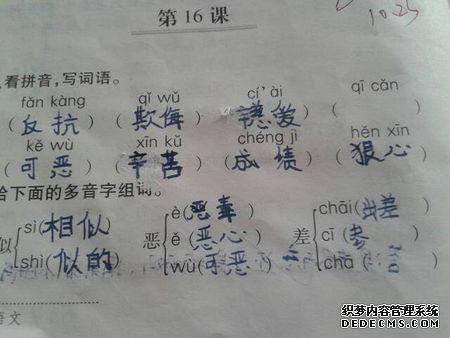 第16课
10.25
看拼音,写词语。
fǎn kàng qī wǔ cí'ài qī cǎn
(反抗)(欺侮)(慈爱)(
kě wù xīn kǔ chéng jì hěn xīn
(可恶)(辛苦)(成绩)(狠心)
给下面的多音字组词。
似 sì(相似
shì(似的
恶 è(恶毒)
ě(恶心)
wù(可恶)
差 chāi(出差)
cī(参
chā(
语文
织梦内容管理系统
DEDECMS.COM